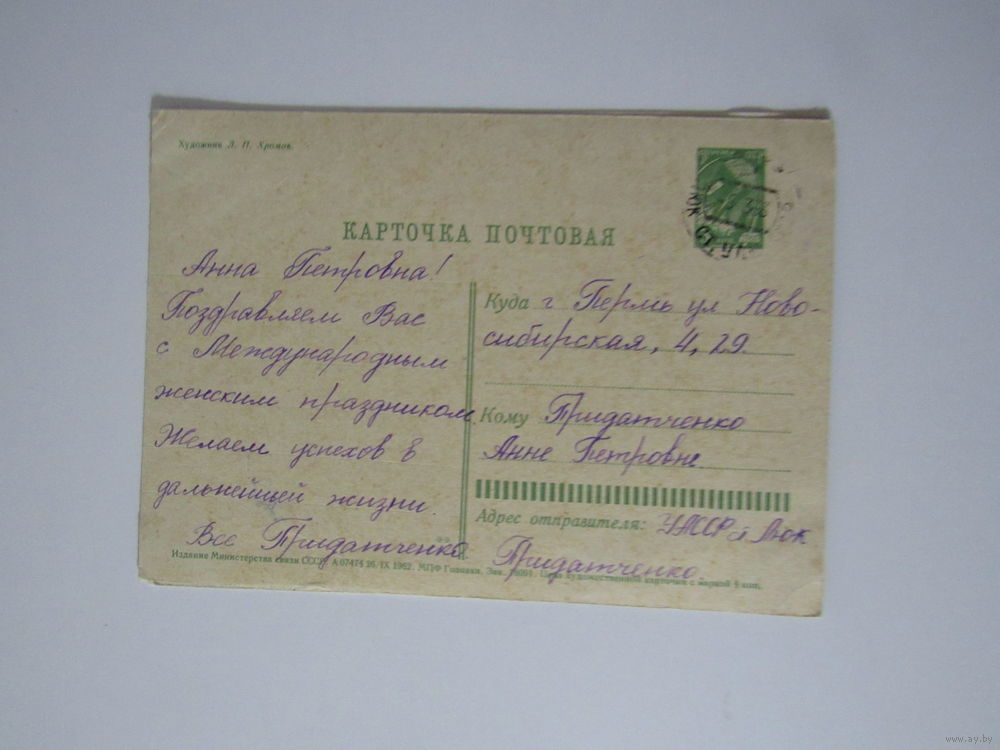 Художник Л. П. Храмов.
КАРТОЧКА ПОЧТОВАЯ
Анна Петровна!
Поздравляем Вас
с Международным
женским праздником
Желаем успехов в
дальнейшей жизни.
Все Придатченко.
Куда г Пермь ул Ново-
сибирская, 4, 29.
Кому Придатченко
Анне Петровне
Адрес отправителя: УАССР Люк
Придатченко
Издание Министерства связи СССР. А 07474 26/IX 1962. МПФ Гознака. Зак. Цена художественной карточки с маркой 4 коп.
www.ay.by